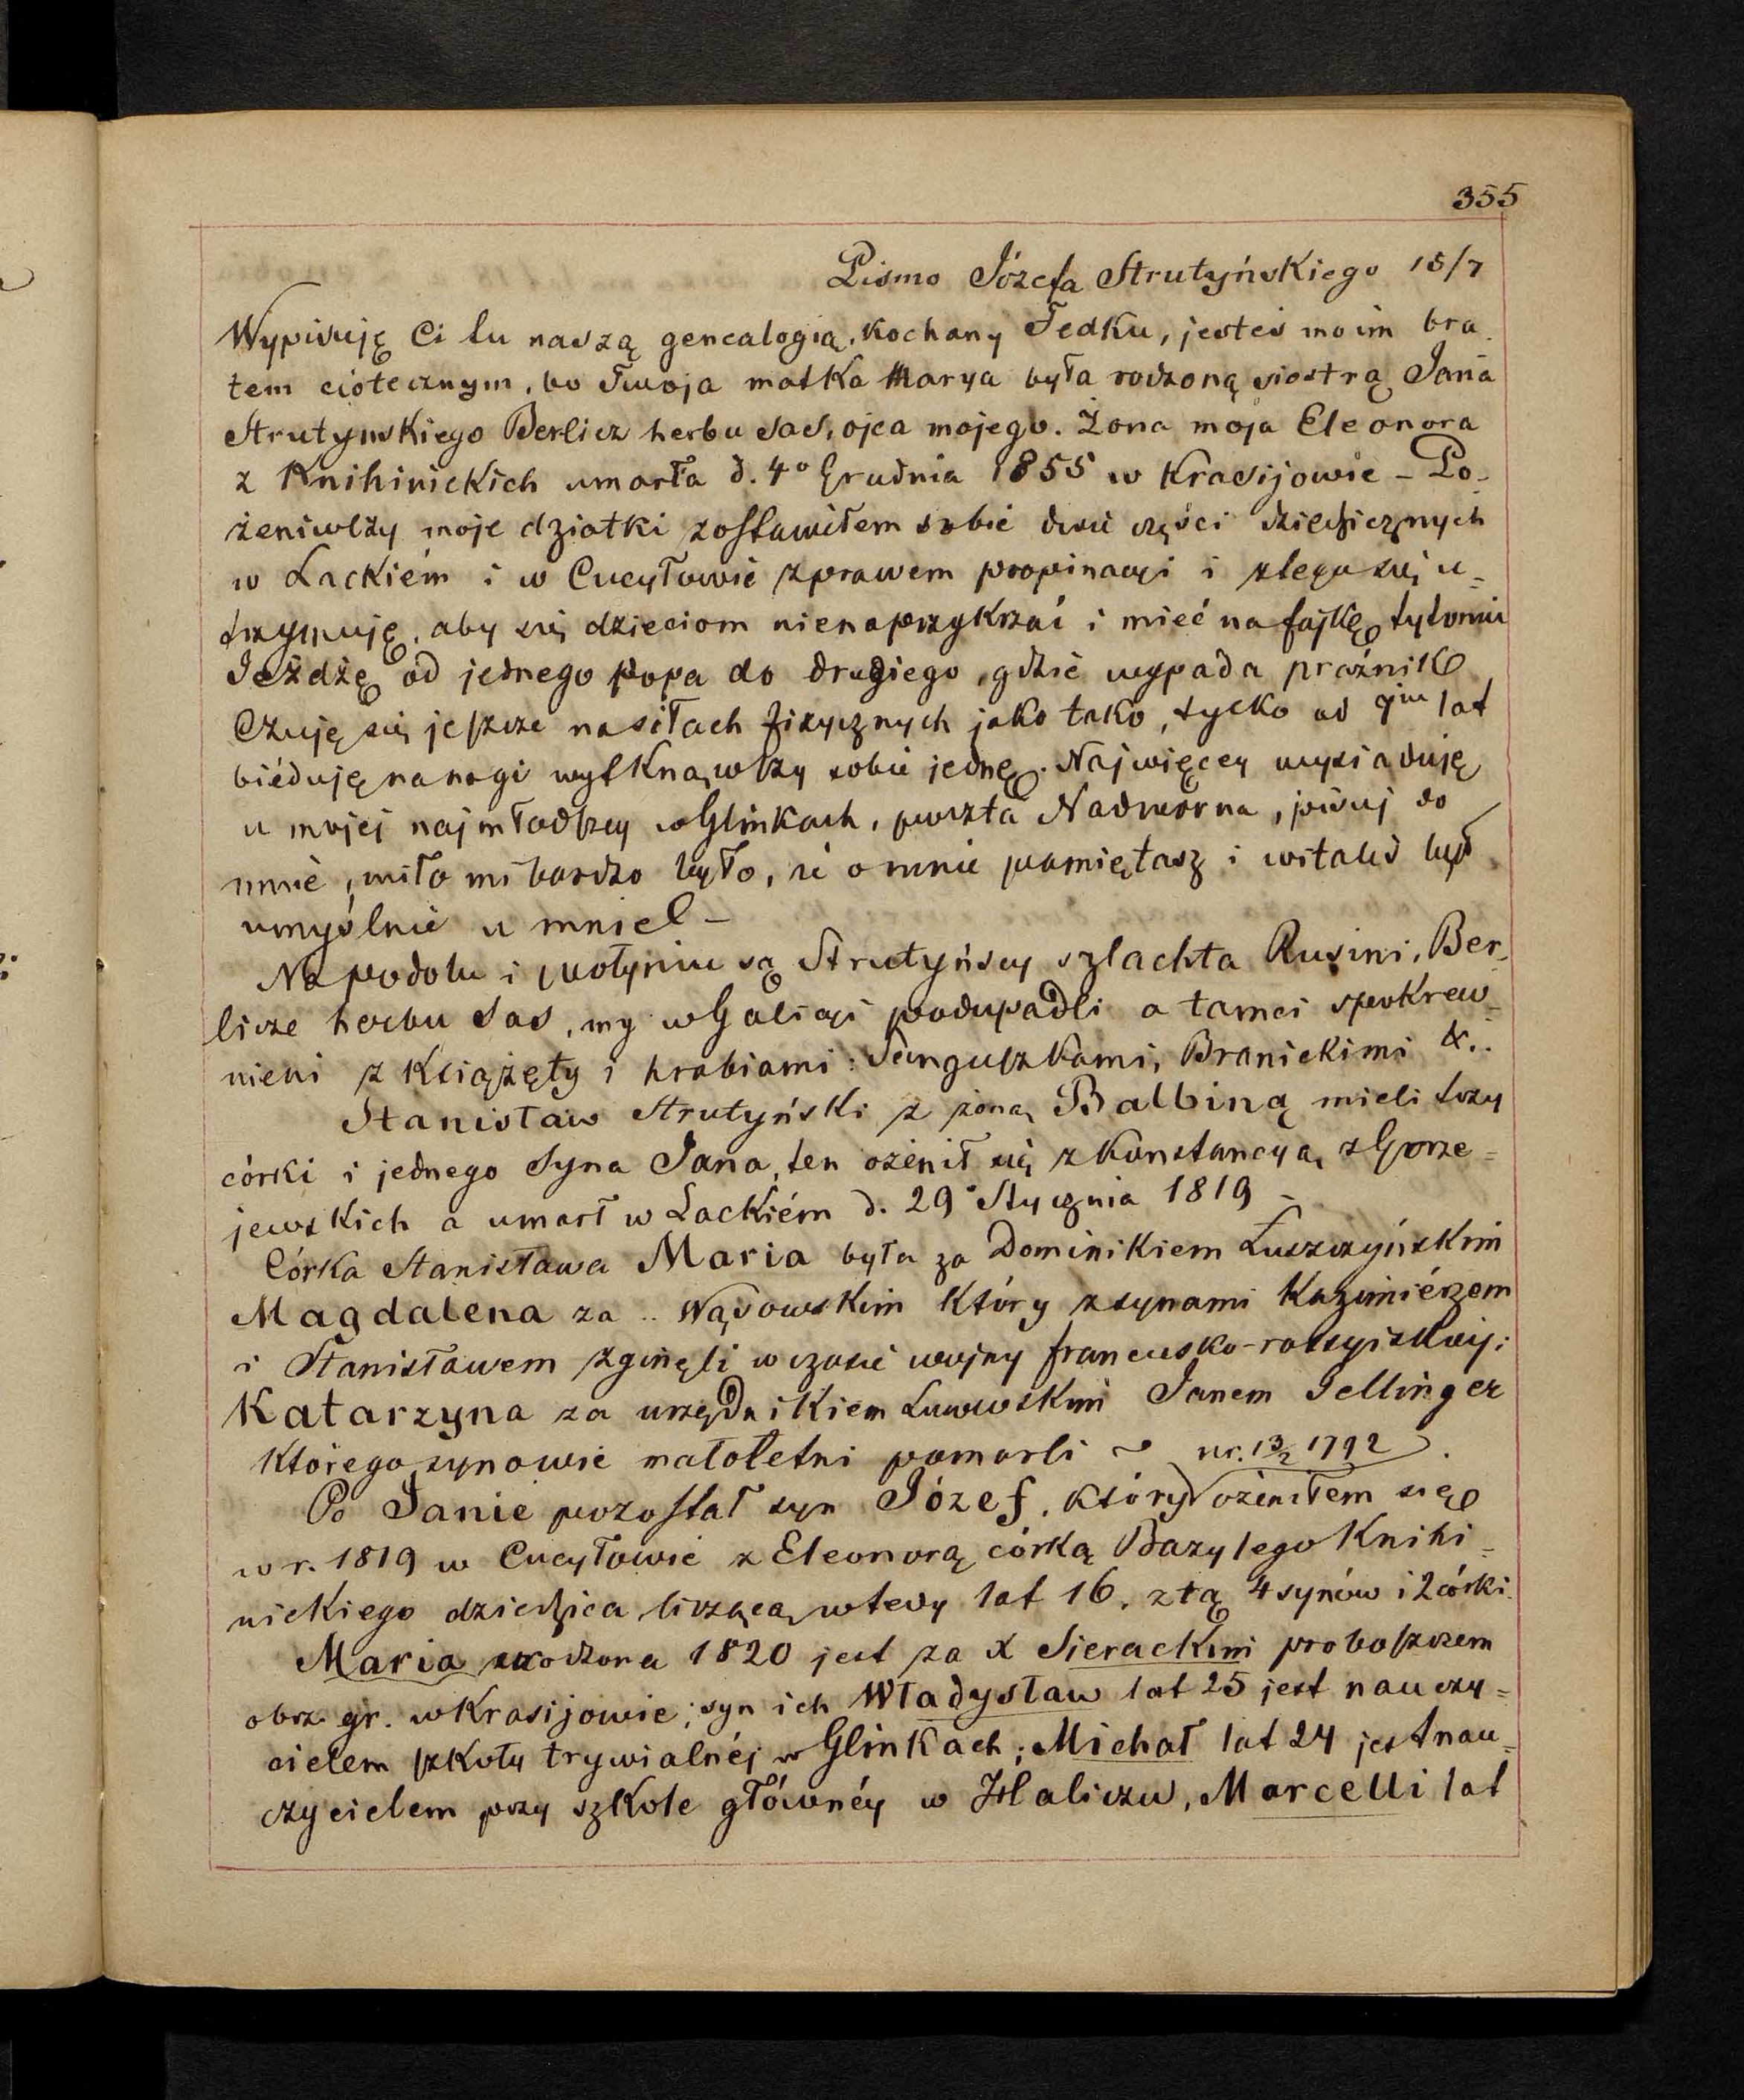 355
Pismo Józefa Strutyńskiego 15/7
Wypisuję Ci tu naszą genealogią, kochany Fedku, jesteś moim bra-
tem ciotecznym, bo Twoja matka Marya była rodzoną siostrą Jana
Strutynskiego Berlicz herbu Sas, ojca mojego. Żona moja Eleonora
z Knihinickich umarła d. 4º Grudnia 1855 w Krasijowie – Po-
żeniwszy moje dziatki zostawiłem sobie dwie części dziedzicznych
w Lackiém i w Cucyłowie z prawem propinacyi i z tego się u=
trzymuję, aby się dzieciom nienaprzykrzać i mieć na fajkę tytoniu
Jeżdżę od jednego popa do drugiego, gdzie wypada praźnik
Czuję się jeszcze na siłach fizycznych jako tako, tylko od 7miu lat
biéduję na nogi wytknąwszy sobie jednę. Najwięcey wysiaduję
u mojej najmłodszey w Glinkach, poczta Nadworna, pisuj do
mnie, miło mi bardzo było, że o mnie pamiętasz i witałeś być
umyślnie u mnie! –
Na podolu i wołyniu są Strutyńscy szlachta Rusini, Ber-
licze herbu Sas, my w Galicyi podupadli a tamci spokrew-
nieni z Książęty i hrabiami: Sanguszkami, Branickimi &..
Stanisław Strutyński z żoną Balbiną mieli trzy
córki i jednego syna Jana, ten ożenił się z Konstancyą z Gorze=
jewskich a umarł w Lackiém d. 29º Stycznia 1819 –
Córka Stanisława Maria była za Dominikiem Łuszczyńskim
Magdalena za .. Wąsowskim który z synami Kazimiérzem
i Stanisławem zginęli w czasie wojny francusko-rossyiskiej;
Katarzyna za urzędnikiem Lwowskim Janem Jellinger
którego synowie małoletni pomarli ~ ur. 13/2 1792
Po Janie pozostał syn Józef, który ożeniłem się
w r. 1819 w Cucyłowie z Eleonorą córką Bazylego Knihi=
nickiego dziedzica liczącą wtedy lat 16, z tą 4 synów i 2 córki.
Maria urodzona 1820 jest za X Sierackim proboszczem
obrz. gr. w Krasijowie; syn ich Władysław lat 25 jest nauczy=
cielem szkoły trywialnéj w Glinkach; Michał lat 24 jest nau=
czycielem przy szkole główney w Haliczu, Marcelli lat